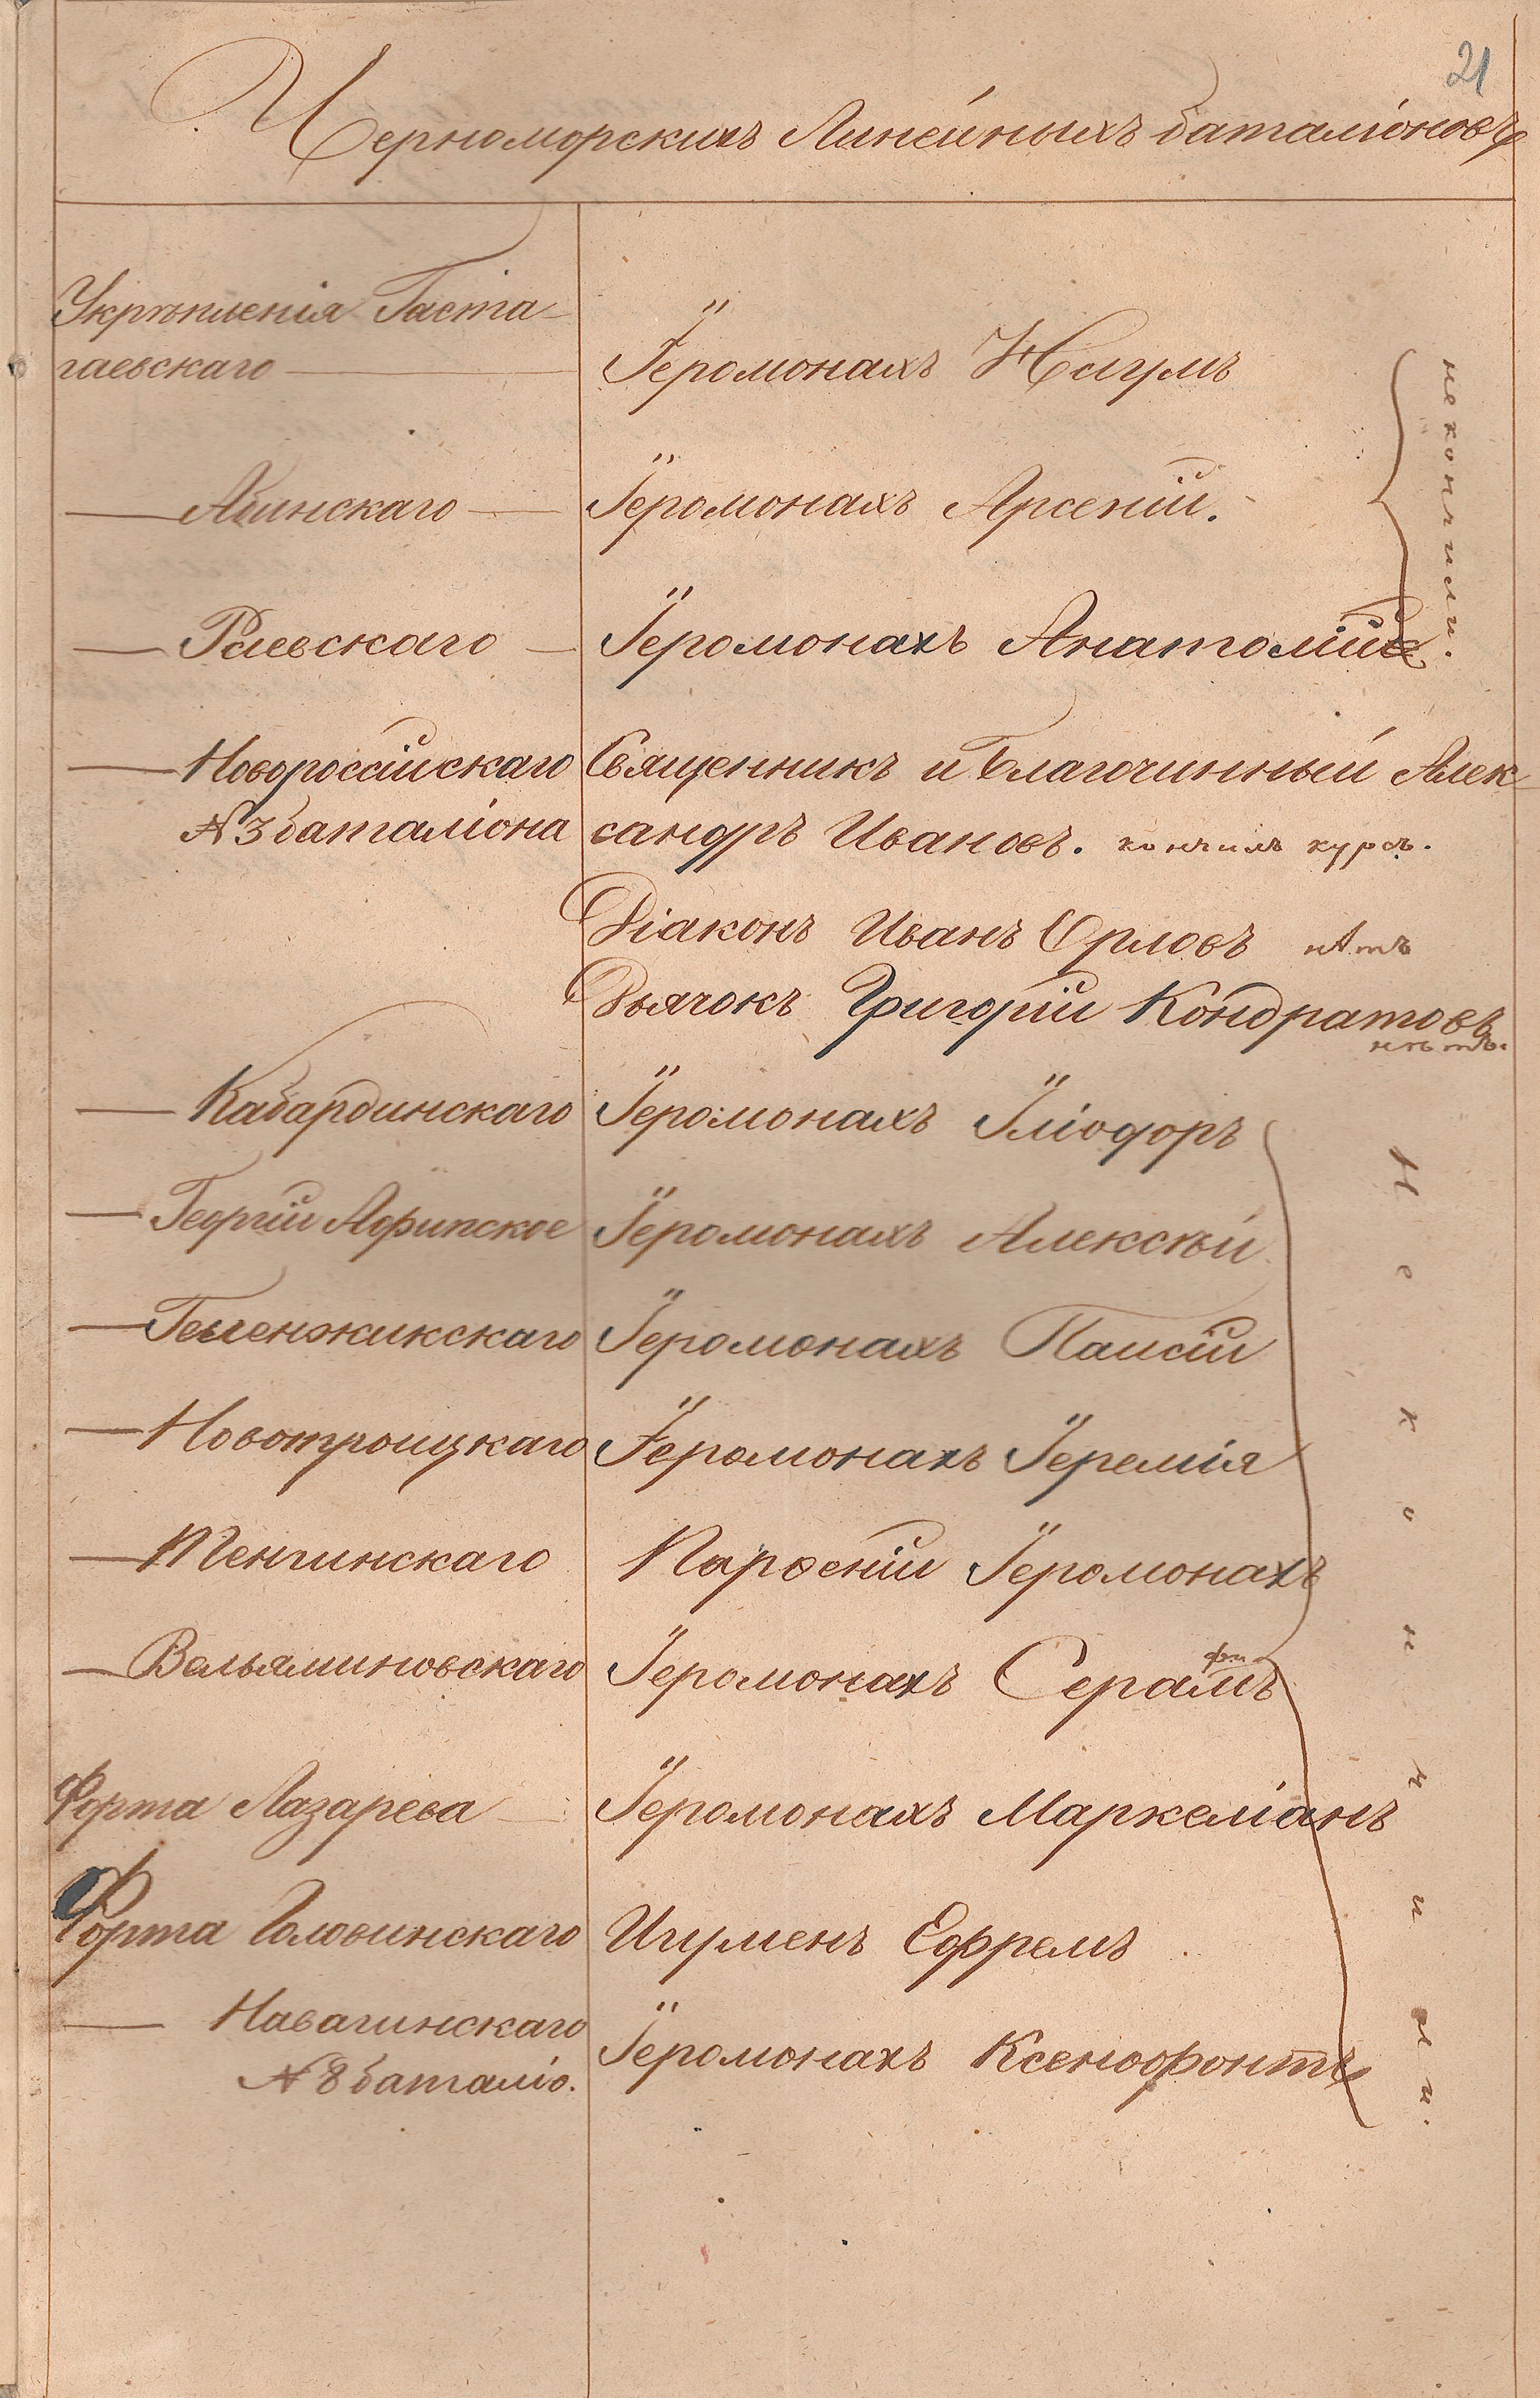 21
Черноморскихъ Линейныхъ баталіоновъ
Укрѣпленія Гаста-
гаевскаго — Іеромонахъ Наумъ
— Абинскаго — Іеромонахъ Арсеній.
— Раевскаго — Іеромонахъ Анатолій
не кончили.
— Новороссійскаго Священникъ и Благочинный Алек-
№ 3 баталіона сандръ Ивановъ. кончилъ курсъ.
Діаконъ Иванъ Орловъ нѣтъ
Дьячокъ Григорій Кондратовъ
нѣтъ.
— Кабардинскаго Іеромонахъ Іліодоръ
— Георгій Афипское Іеромонахъ Алексѣй
— Геленжикскаго Іеромонахъ Паисій
— Новотроицкаго Іеромонахъ Іеремія
— Тенгинскаго Парѳеній Іеромонахъ
— Вельяминовскаго Іеромонахъ Серафимъ
Форта Лазарева Іеромонахъ Маркеліанъ
Форта Головинскаго Игуменъ Ефремъ
— Навагинскаго
№ 8 баталіо. Іеромонахъ Ксенофонтъ
Не кончили.